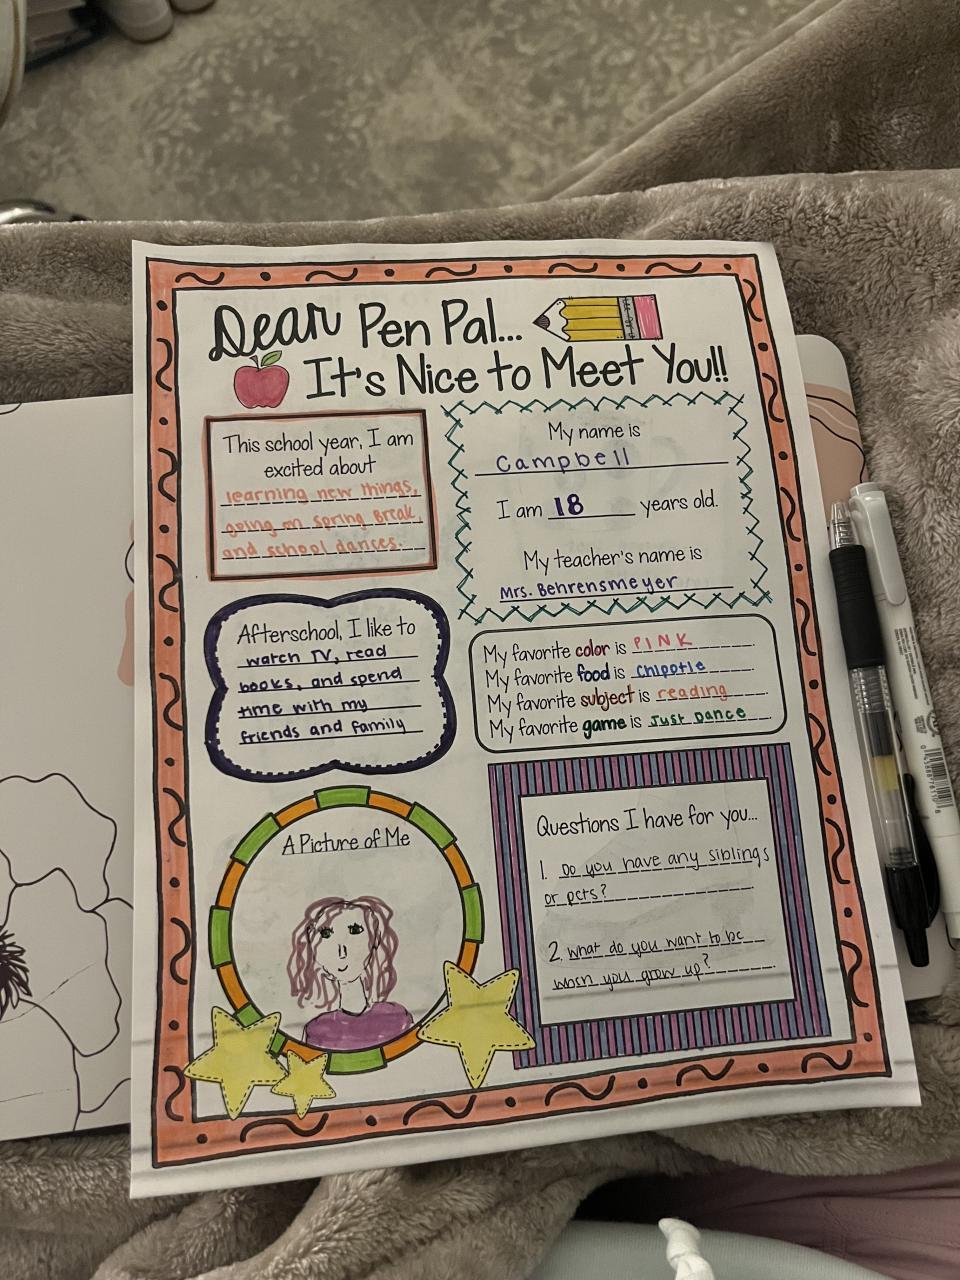 Dear Pen Pal...
It's Nice to Meet You!!
This school year, I am
excited about
learning new things,
going on spring break,
and school dances.
My name is
Campbell
I am 18 years old.
My teacher's name is
Mrs. Behrensmeyer
Afterschool, I like to
watch TV, read
books, and spend
time with my
friends and family
My favorite color is PINK
My favorite food is chipotle
My favorite subject is reading
My favorite game is Just Dance
A Picture of Me
Questions I have for you...
1. Do you have any siblings
or pets?
2. what do you want to be
when you grow up?